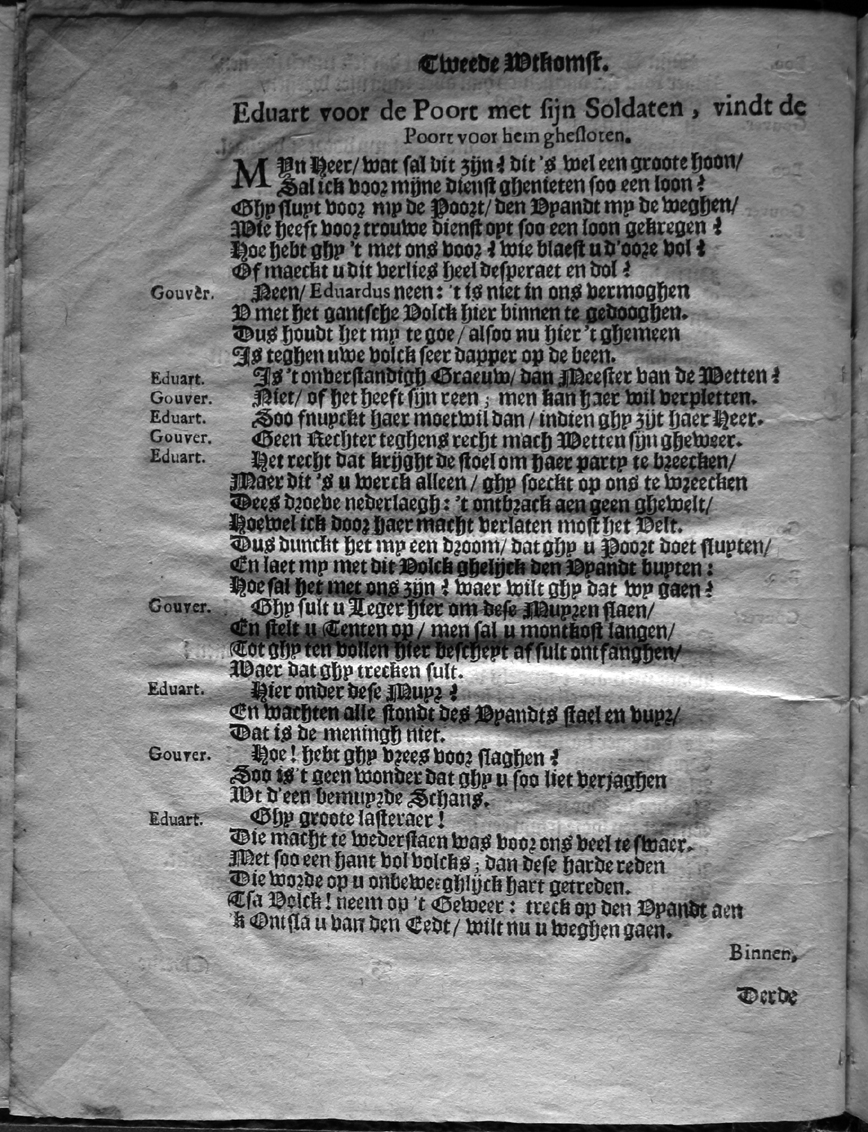 Tweede Wtkomst.
Eduart voor de Poort met sijn Soldaten, vindt de
Poort voor hem ghesloten.
MYn Heer/ wat sal dit zijn? dit 's wel een groote hoon/
Sal ick voor mijne dienst ghenieten soo een loon?
Ghy sluyt voor my de Poort/ den Vyandt my de weghen/
Wie heeft voor trouwe dienst oyt soo een loon gekregen?
Hoe hebt ghy 't met ons voor? wie blaest u d'oore vol?
Of maeckt u dit verlies heel desperaet en dol?
Gouver. Neen/ Eduardus neen: 't is niet in ons vermoghen
V met het gantsche Volck hier binnen te gedooghen.
Dus houdt het my te goe/ alsoo nu hier 't ghemeen
Is teghen uwe volck seer dapper op de been.
Eduart. Is 't onverstandigh Graeuw/ dan Meester van de Wetten?
Gouver. Niet/ of het heeft sijn reen; men kan haer wil verpletten.
Eduart. Soo snuyckt haer moetwil dan/ indien ghy zijt haer Heer.
Gouver. Geen Rechter teghens recht mach Wetten sijn gheweer.
Eduart. Het recht dat krijght de stoel om haer party te breecken/
Maer dit 's u werck alleen/ ghy soeckt op ons te wreecken
Dees droeve nederlaegh: 't ontbrack aen geen ghewelt/
Hoewel ick door haer macht verlaten most het Velt.
Dus dunckt het my een droom/ dat ghy u Poort doet sluyten/
En laet my met dit Volck ghelijck den Vyandt buyten:
Hoe sal het met ons zijn? waer wilt ghy dat wy gaen?
Gouver. Ghy sult u Leger hier om dese Muyren slaen/
En stelt u Tenten op/ men sal u montkost langen/
Tot ghy ten vollen hier bescheyt af sult ontfanghen/
Waer dat ghy trecken sult.
Eduart. Hier onder dese Muyr?
En wachten alle stondt des Vyandts stael en vuyr/
Dat is de meningh niet.
Gouver. Hoe! hebt ghy vrees voor slaghen?
Soo is 't geen wonder dat ghy u soo liet verjaghen
Wt d'een bemuyrde Schans.
Eduart. Ghy groote lasteraer!
Die macht te wederstaen was voor ons veel te swaer.
Met soo een hant vol volcks; dan dese harde reden
Die worde op u onbeweeghlijck hart getreden.
Tsa Volck! neem op 't Geweer: treck op den Vyandt aen
'k Ontsla u van den Eedt/ wilt nu u weghen gaen.
Binnen,
Derde